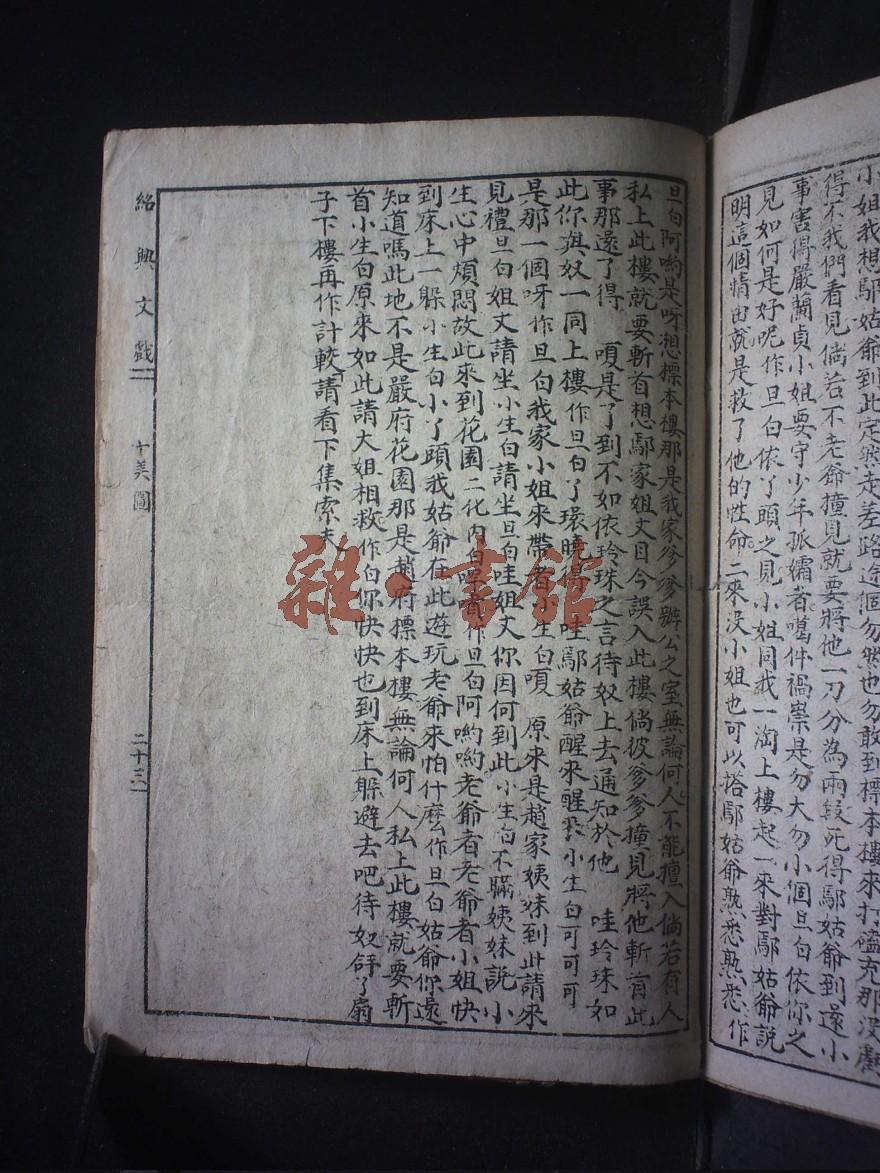 小姐我想鄢姑爺到此定然走差路途個勿然也勿敢到標本樓來打磕充那没
得不我們看見倘若不老爺撞見就要將他一刀分為兩段死得鄢姑爺到還小
事害得嚴蘭貞小姐要守少年孤孀者噶件禍祟是勿大勿小個旦白依你之
見如何是好呢作旦白依了頭之見小姐同我一淘上樓起一來對鄢姑爺說
明這個情由就是救了他的性命二來没小姐也可以搭鄢姑爺熟悉熟悉作
旦白阿喲是呀想標本樓那是我家爹爹辦公之室無論何人不能擅入倘若有人
私上此樓就要斬首想鄢家姐丈目今誤入此樓倘彼爹爹撞見將他斬首此
事那還了得 唄是了到不如依玲珠之言待奴上去通知於他 哇玲珠如
此你與奴一同上樓作旦白了環曉得 哇鄢姑爺醒來醒來小生白可可可
是那一個呀作旦白我家小姐來帶者小生白唄 原來是趙家姨妹到此請來
見禮旦白姐丈請坐小生白請坐旦白哇姐丈你因何到此小生白不瞞姨妹說小
生心中煩悶故此來到花園二化内白嘚啃作旦白阿喲喲老爺者老爺者小姐快
到床上一躲小生白小了頭我姑爺在此遊玩老爺來怕什麼作旦白姑爺你還
知道嗎此地不是嚴府花園那是趙府標本樓無論何人私上此樓就要斬
首小生白原來如此請大姐相救作白你快快也到床上躲避去吧待奴舒了扇
子下樓再作計較請看下集索夫
紹興文戲 十美圖 二十三
雜·書館